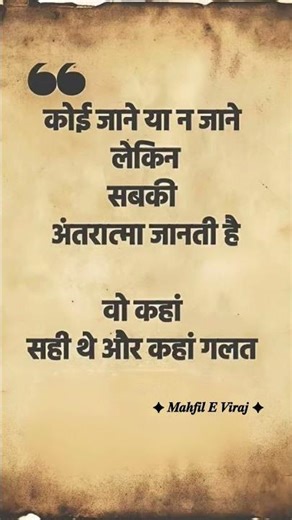 ❝
कोई जाने या न जाने
लेकिन
सबकी
अंतरात्मा जानती है
वो कहां
सही थे और कहां गलत
✦ Mahfil E Viraj ✦